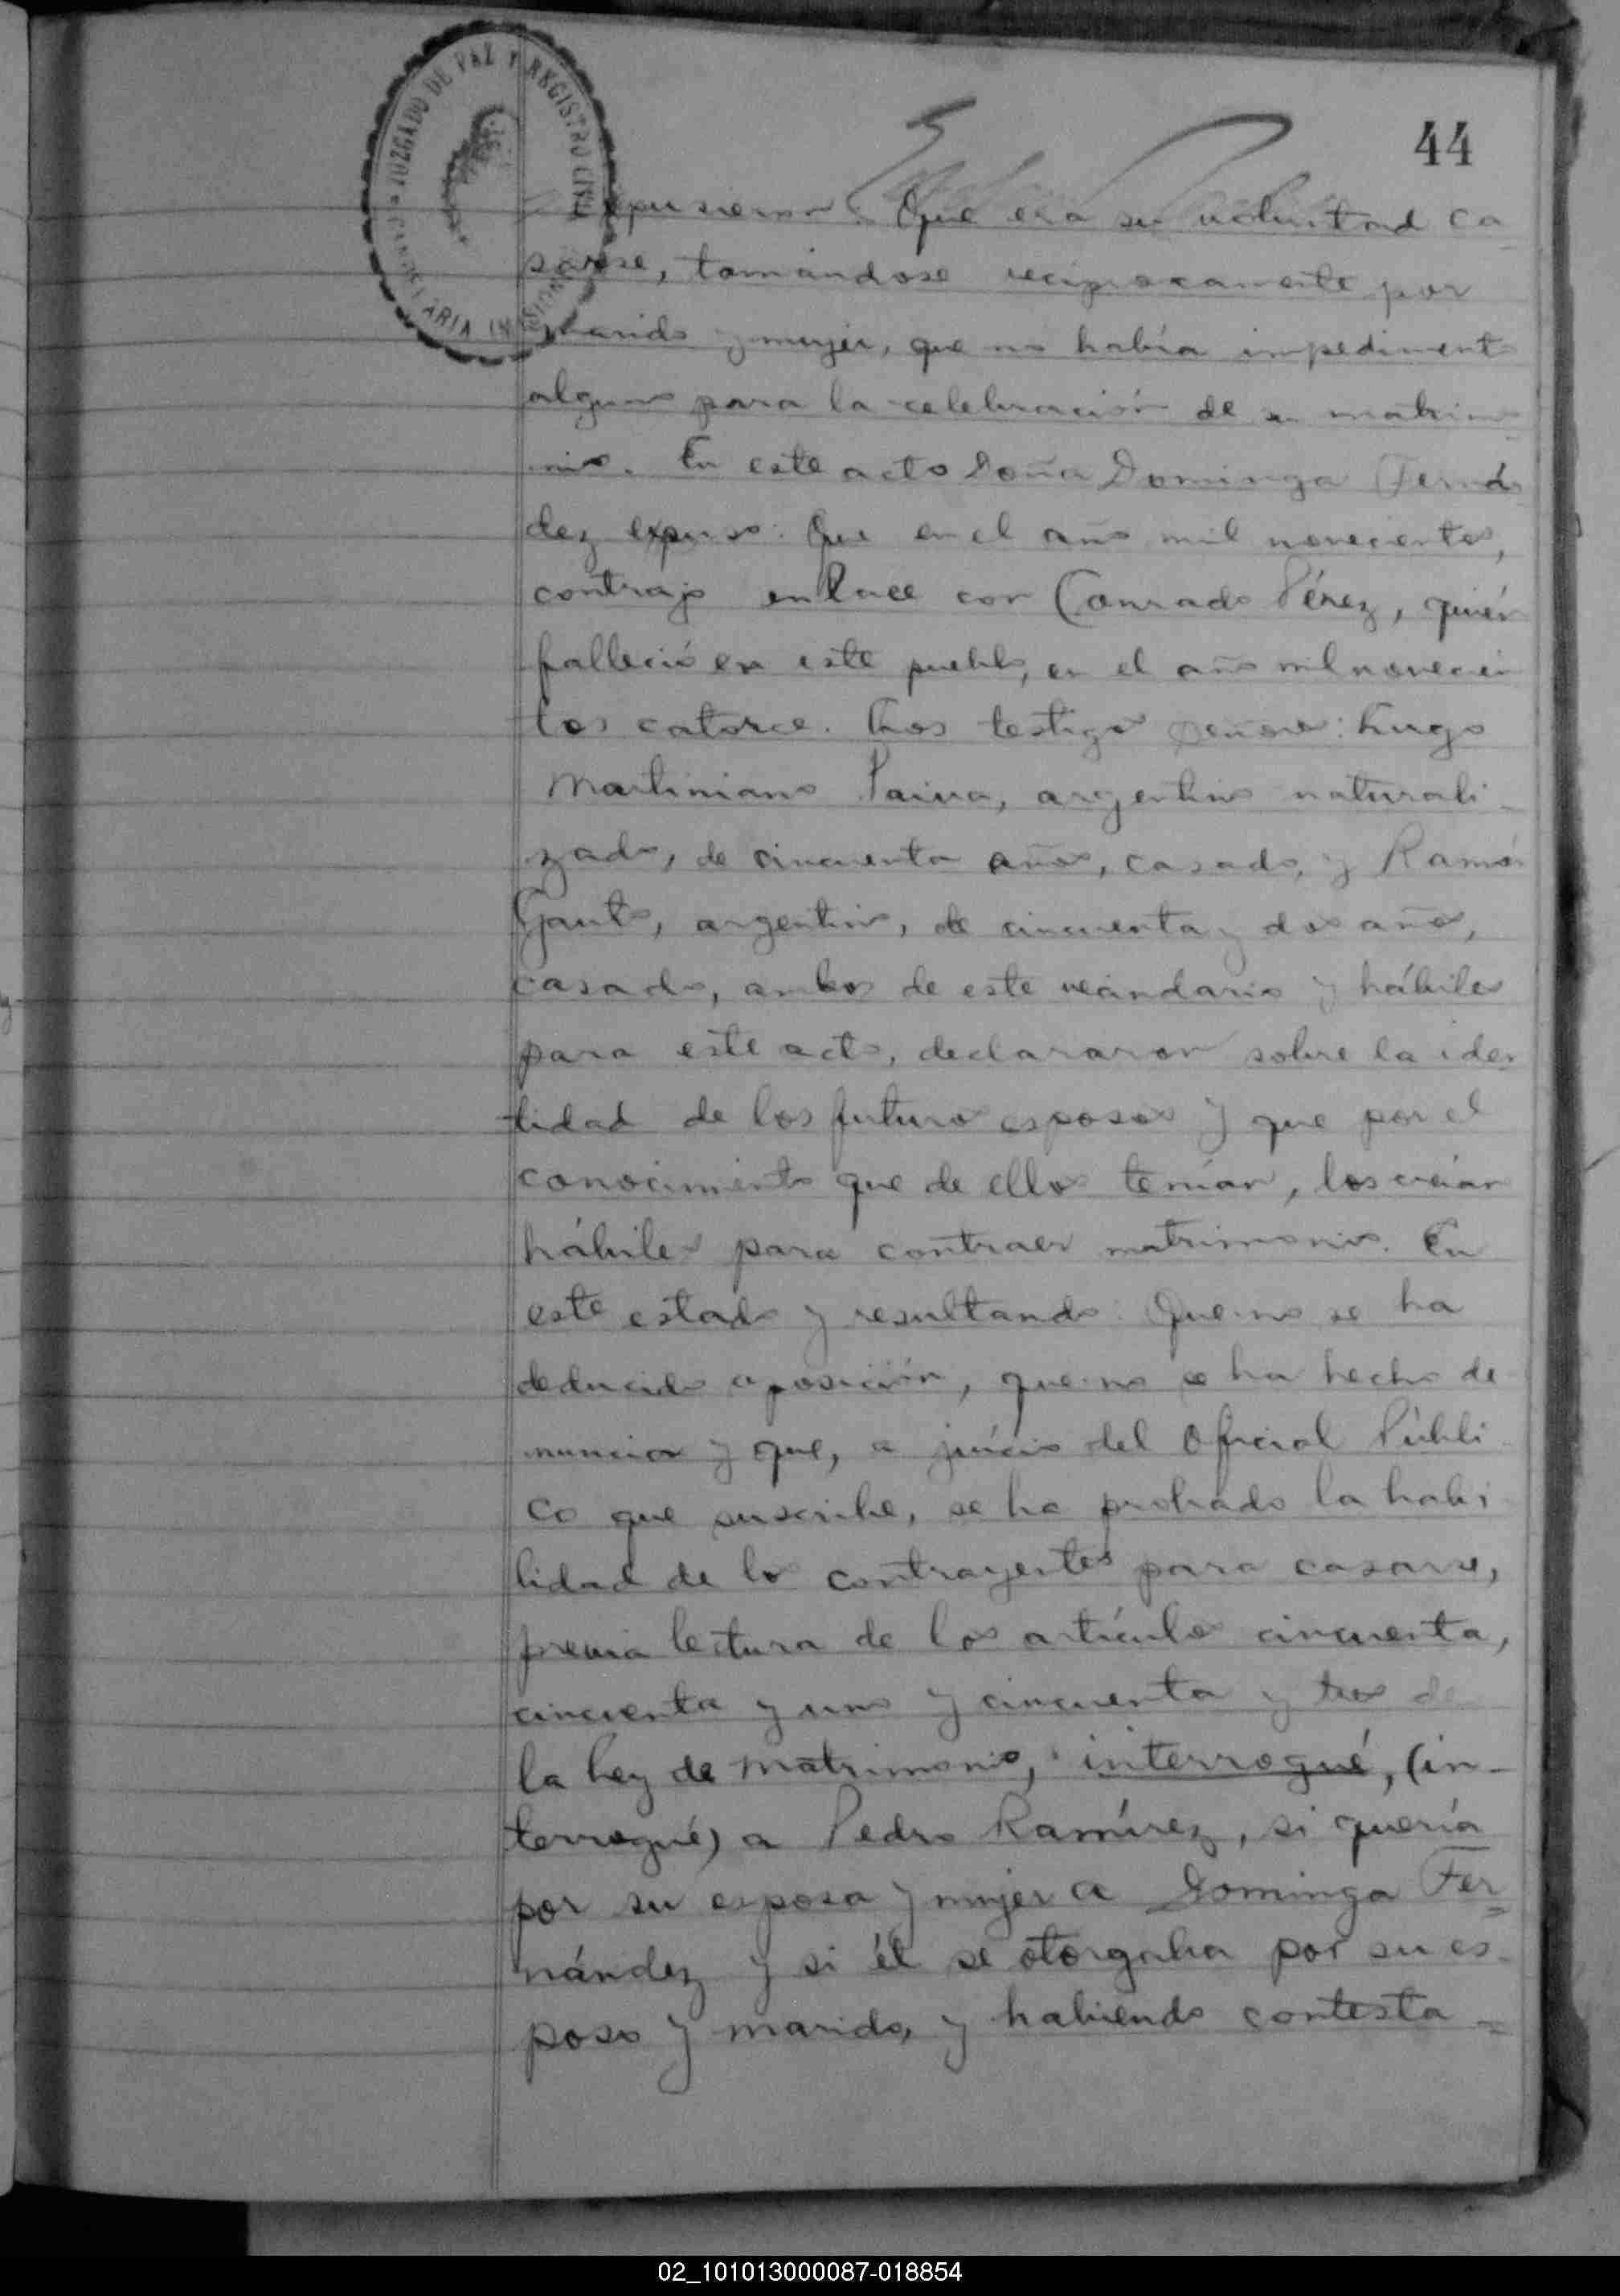 44
JUZGADO DE PAZ Y REGISTRO CIVIL
CANDELARIA
expusieron: Que era su voluntad ca-
sarse, tomándose recíprocamente por
marido y mujer, que no había impedimento
alguno para la celebración de su matrimo-
nio. En este acto Doña Dominga Fernán
dez expuso: Que en el año mil novecientos,
contrajo enlace con Conrado Pérez, quién
falleció en este pueblo, en el año mil novecien
tos catorce. Los testigos señores: Hugo
Martiniano Paiva, argentino naturali-
zado, de cincuenta años, casado, y Ramón
Gauto, argentino, de cincuenta y dos años,
casado, ambos de este vecindario y hábiles
para este acto, declararon sobre la iden
tidad de los futuros esposos y que por el
conocimiento que de ellos tenían, los creían
hábiles para contraer matrimonio. En
este estado y resultando: Que no se ha
deducido oposición, que no se ha hecho de-
nuncia y que, a juicio del Oficial Públi
co que suscribe, se ha probado la habi-
lidad de los contrayentes para casarse,
previa lectura de los artículos cincuenta,
cincuenta y uno y cincuenta y tres de
la Ley de Matrimonio, interrogué, (in-
terrogué) a Pedro Ramírez, si quería
por su esposa y mujer a Dominga Fer-
nández y si él se otorgaba por su es-
poso y marido, y habiendo contesta-
02_101013000087-018854